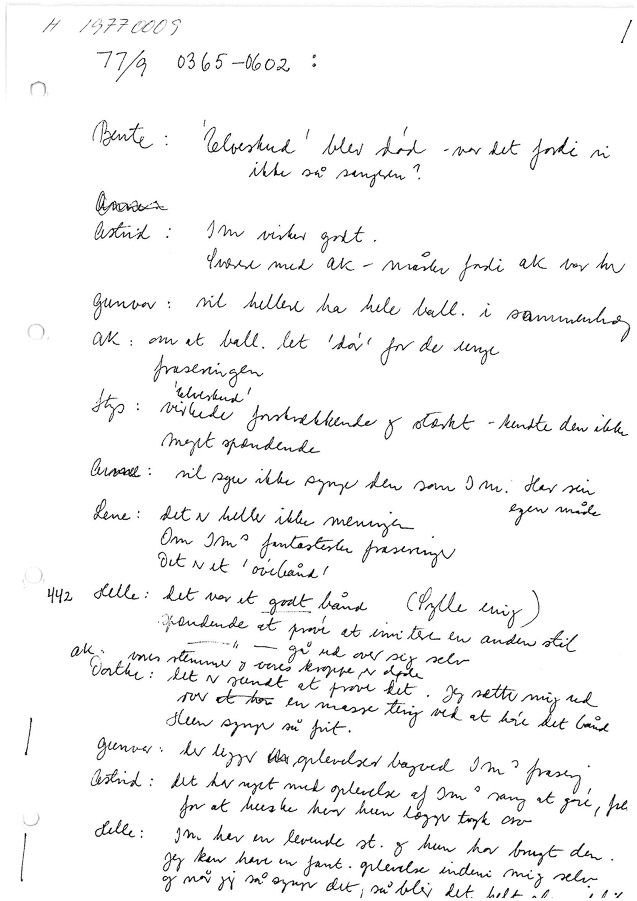 H 19770009
77/9 0365-0602 :
Bente : 'Elveskud' blev død - var det fordi vi
ikke så sangeren?
Astrid : IM virker godt.
Svære med AK - måske fordi AK var her
Gunvor : vil hellere ha hele ball. i sammenhæng
AK : om at ball. let 'dør' for de unge
fraseringen
'Elveskud'
: virkede forskrækkende og stærkt - kendte den ikke
meget spændende
: vil sgu ikke synge den som IM. Har sin
egen måde
Lene : det er heller ikke meningen
Om IMs fantastiske fraseringer
Det er et 'øvebånd'
442 Helle : det var et godt bånd (Sylle enig)
spændende at prøve at imitere en anden stil
— " — gå ud over sig selv
AK. vores stemmer og vores kroppe er døde
Dorthe : det er sundt at prøve det. Jeg sætte mig ud
over en masse ting ved at høre det bånd
Hun synger så frit.
Gunvor : der ligger oplevelser bagved IMs frasering
Astrid : det har noget med oplevelse af IMs sang at gøre,
for at huske hvor hun lægge tryk osv
Helle : IM har en levende st. og hun har brugt den.
Jeg kan have en fant. oplevelse indeni mig selv
og når jeg så synger det, så blir det helt